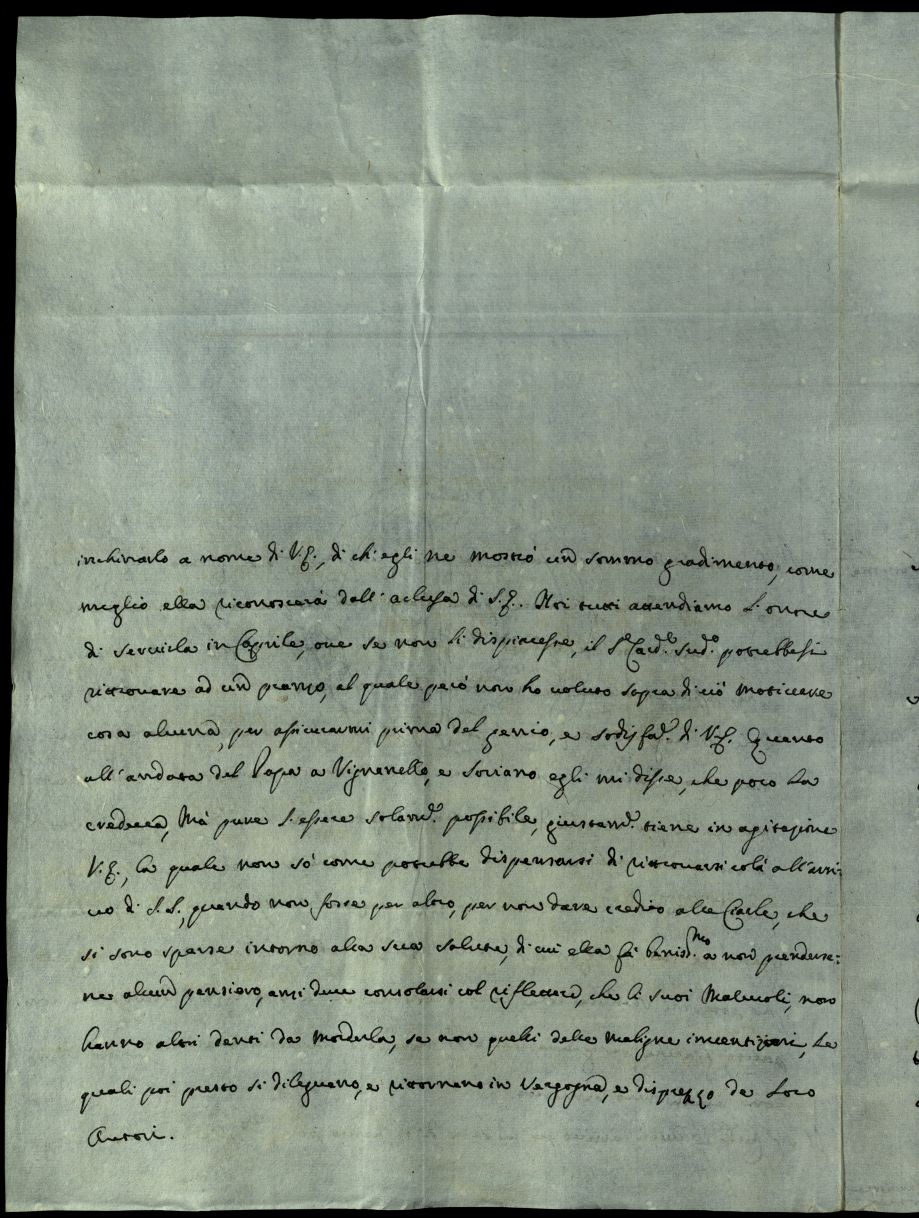 inchinarlo a nome di V.E., di ch'egli ne mostrò un sommo gradimento, come
meglio ella riconoscerà dall'aclusa di S.E. Noi tutti attendiamo l'onore
di servirla in Caprile, ove se non li dispiacesse, il S.r Card.le sud.o potrebbesi
ritrovare ad un pranzo, al quale però non ho voluto sopra di ciò motivare
cosa alcuna, per assicurarmi prima del genio, e sodisfaz.e di V.E. Quanto
all'andata del Papa a Vignanello, e Soriano egli mi disse, che poco la
credeva, Mà pure l'essere solam.e possibile, giustam.e tiene in agitazione
V.E., la quale non sò come potrebbe dispensarsi di ritrovarsi colà all'arri-
vo di S.S., quando non fosse per altro, per non dare credito alle Ciarle, che
si sono sparse intorno alla sua salute, di cui ella fà beniss.mo a non prenderse-
ne alcun pensiero, anzi deve consolarsi col riflettere, che li suoi Malevoli, non
hanno altri denti da morderla, se non quelli delle maligne invenzioni, le
quali poi presto si dileguano, e ritornano in vergogna, e disprezzo de loro
Autori.